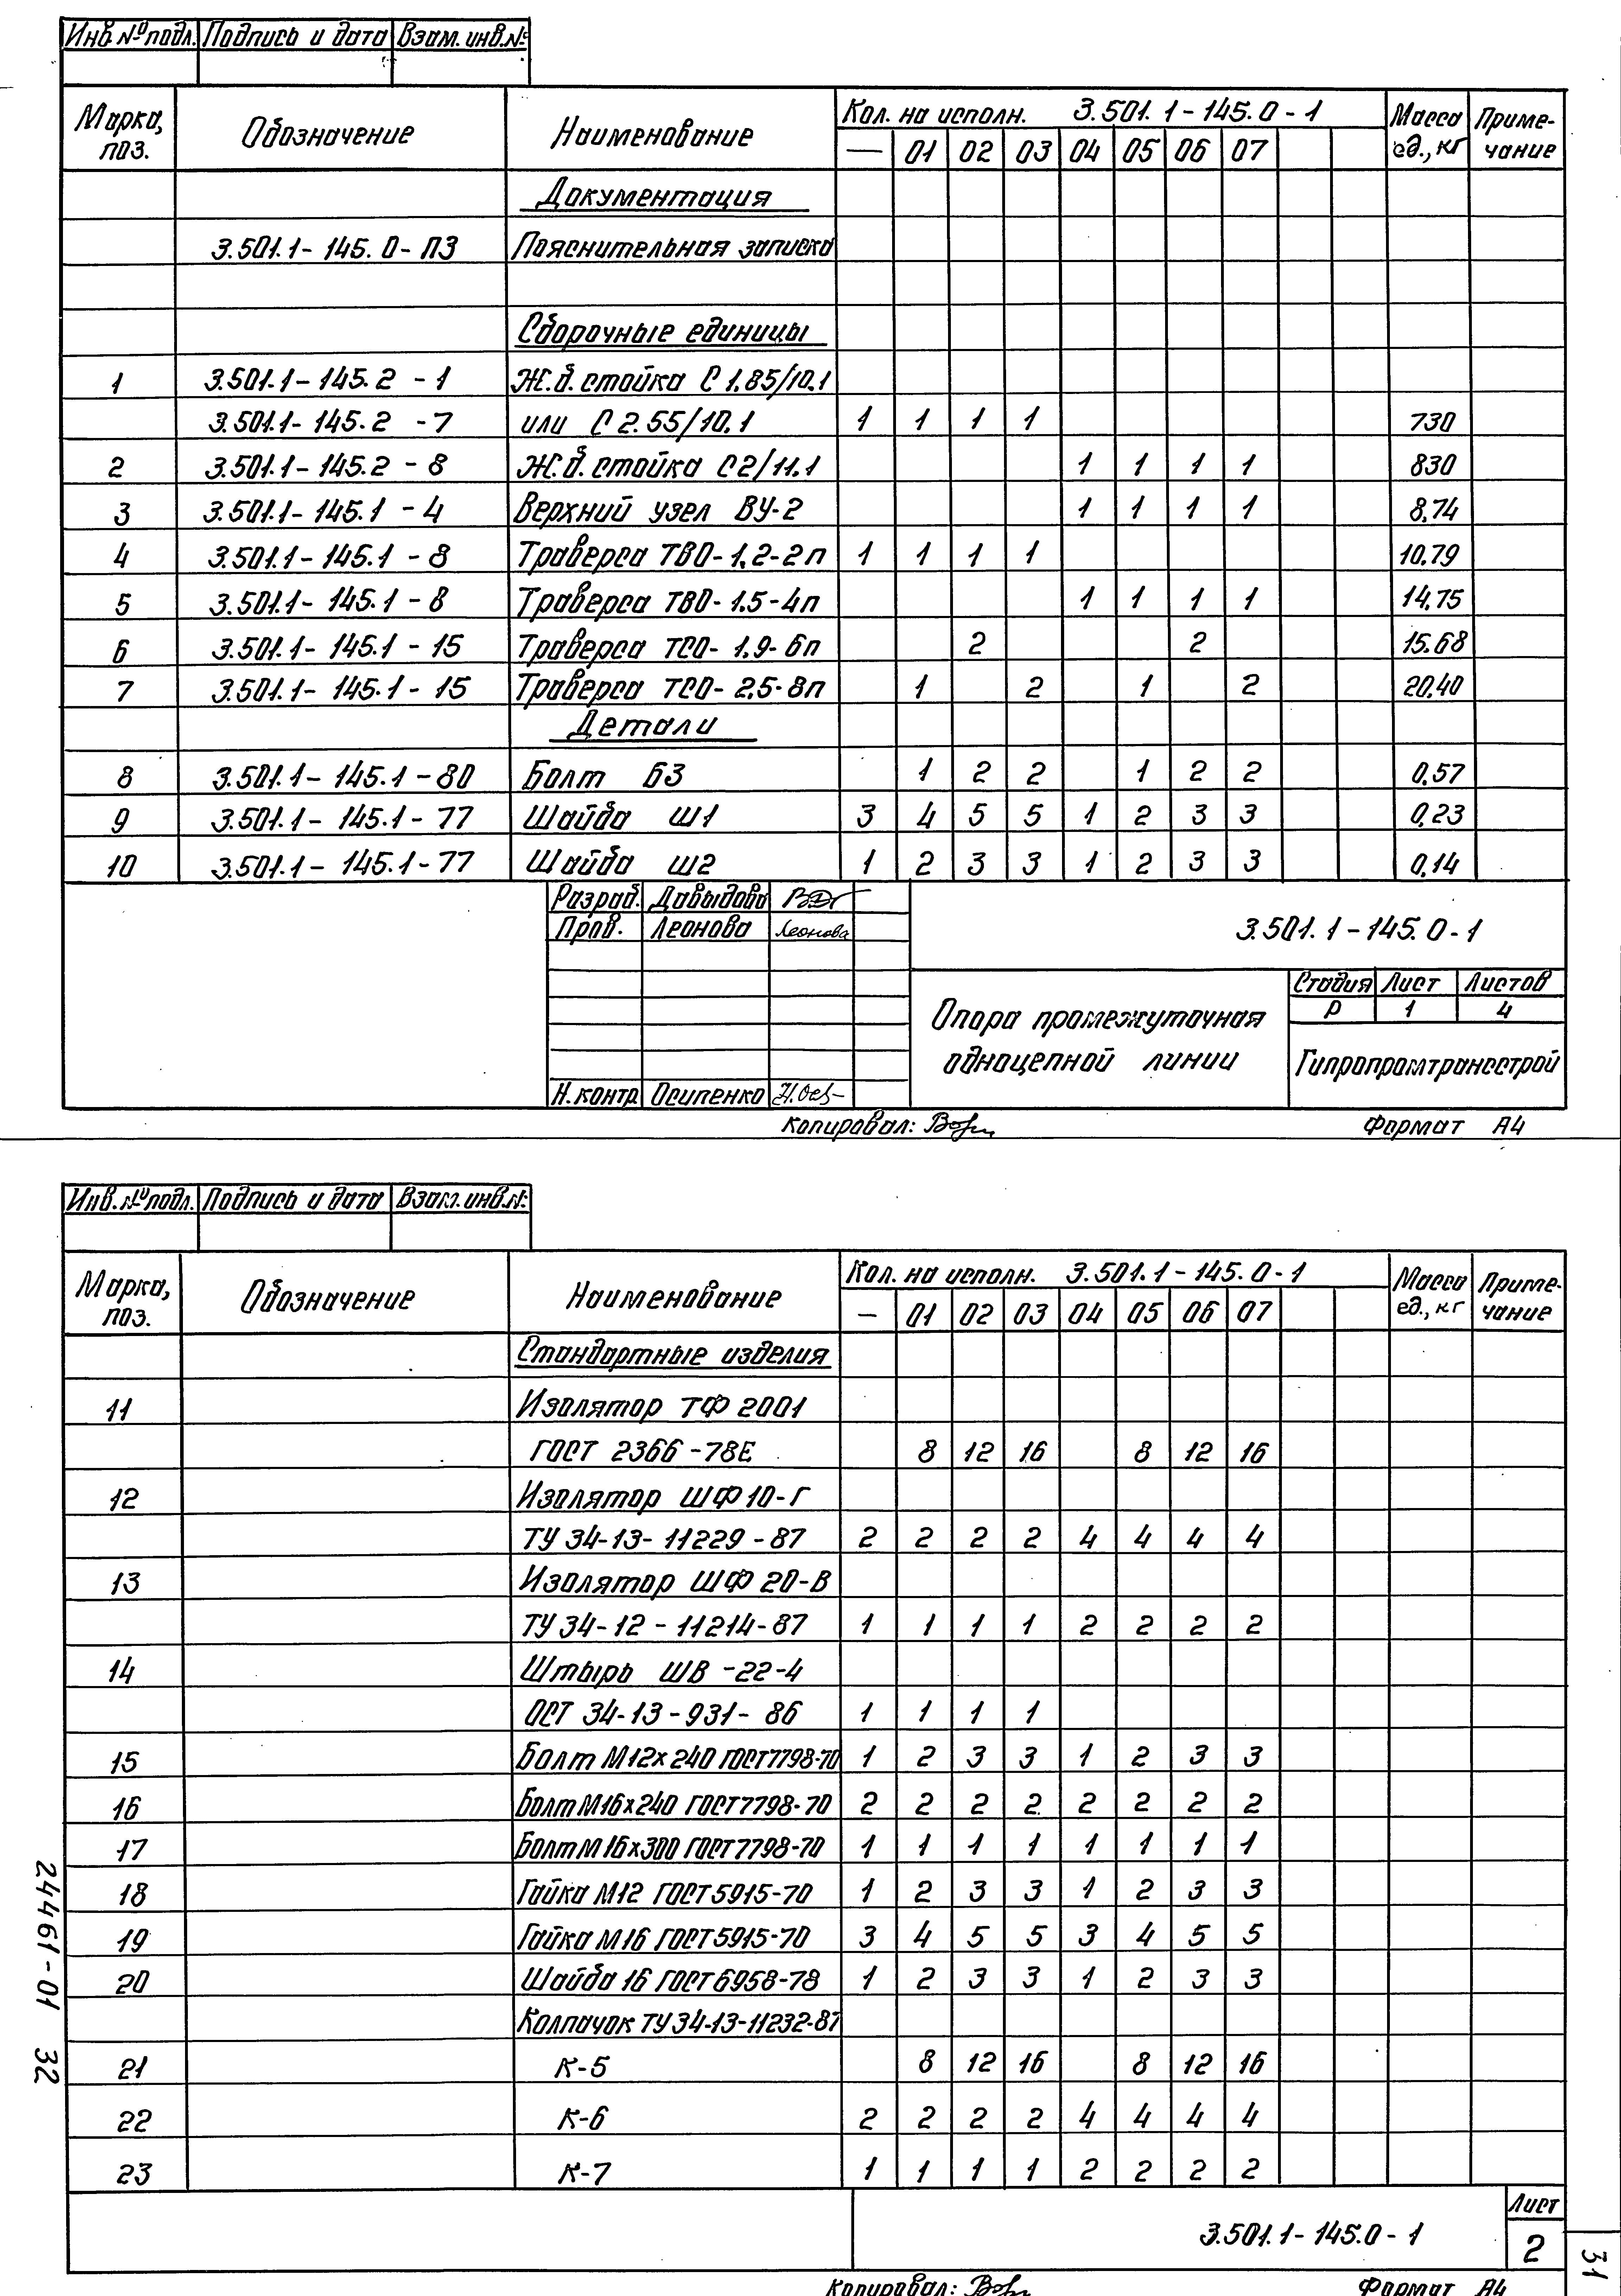 Инв. № подл. Подпись и дата Взам. инв. №
Марка, поз. Обозначение Наименование Кол. на исполн. 3.501.1-145.0-1 Масса ед., кг Примечание
— 01 02 03 04 05 06 07
Документация
3.501.1-145.0-ПЗ Пояснительная записка
Сборочные единицы
1 3.501.1-145.2-1 Ж.б. стойка С 1.85/10.1
3.501.1-145.2-7 или С 2.55/10.1 1 1 1 1 730
2 3.501.1-145.2-8 Ж.б. стойка С2/11.1 1 1 1 1 830
3 3.501.1-145.1-4 Верхний узел ВУ-2 1 1 1 1 8,74
4 3.501.1-145.1-8 Траверса ТВО-1.2-2п 1 1 1 1 10,79
5 3.501.1-145.1-8 Траверса ТВО-1.5-4п 1 1 1 1 14,75
6 3.501.1-145.1-15 Траверса ТСО-1.9-6п 2 2 15.68
7 3.501.1-145.1-15 Траверса ТСО-2.5-8п 1 2 1 2 20,40
Детали
8 3.501.1-145.1-80 Болт Б3 1 2 2 1 2 2 0,57
9 3.501.1-145.1-77 Шайба Ш1 3 4 5 5 1 2 3 3 0,23
10 3.501.1-145.1-77 Шайба Ш2 1 2 3 3 1 2 3 3 0,14
Разраб. Давыдова
Пров. Леонова Леонова
3.501.1-145.0-1
Опора промежуточная одноцепной линии
Стадия Лист Листов
Р 1 4
Гипропромтрансстрой
Н. контр Осипенко
Копировал: Формат А4
Инв. № подл. Подпись и дата Взам. инв. №
Марка, поз. Обозначение Наименование Кол. на исполн. 3.501.1-145.0-1 Масса ед., кг Примечание
— 01 02 03 04 05 06 07
Стандартные изделия
11 Изолятор ТФ 2001
ГОСТ 2366-78Е 8 12 16 8 12 16
12 Изолятор ШФ 10-Г
ТУ 34-13-11229-87 2 2 2 2 4 4 4 4
13 Изолятор ШФ 20-В
ТУ 34-12-11214-87 1 1 1 1 2 2 2 2
14 Штырь ШВ-22-4
ОСТ 34-13-931-86 1 1 1 1
15 Болт М12х240 ГОСТ 7798-70 1 2 3 3 1 2 3 3
16 Болт М16х240 ГОСТ 7798-70 2 2 2 2 2 2 2 2
17 Болт М16х300 ГОСТ 7798-70 1 1 1 1 1 1 1 1
18 Гайка М12 ГОСТ 5915-70 1 2 3 3 1 2 3 3
19 Гайка М16 ГОСТ 5915-70 3 4 5 5 3 4 5 5
20 Шайба 16 ГОСТ 6958-78 1 2 3 3 1 2 3 3
Колпачок ТУ 34-13-11232-87
21 К-5 8 12 16 8 12 16
22 К-6 2 2 2 2 4 4 4 4
23 К-7 1 1 1 1 2 2 2 2
3.501.1-145.0-1 Лист 2
Копировал: Формат А4
24461-01 32
31